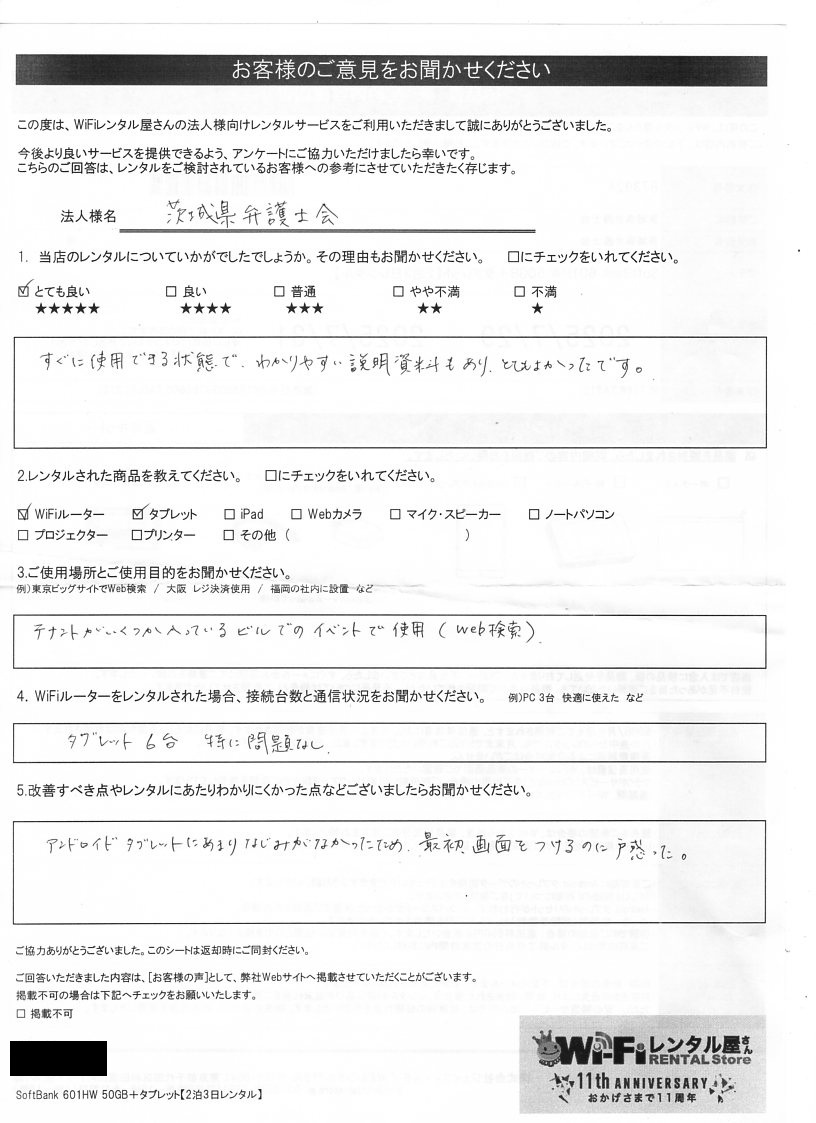 お客様のご意見をお聞かせください
この度は、WiFiレンタル屋さんの法人様向けレンタルサービスをご利用いただきまして誠にありがとうございました。
今後より良いサービスを提供できるよう、アンケートにご協力いただけましたら幸いです。
こちらのご回答は、レンタルをご検討されているお客様への参考にさせていただきたく存じます。
法人様名 茨城県弁護士会
1. 当店のレンタルについていかがでしたでしょうか。その理由もお聞かせください。 □にチェックをいれてください。
☑ とても良い □ 良い □ 普通 □ やや不満 □ 不満
★★★★★ ★★★★ ★★★ ★★ ★
すぐに使用できる状態で、わかりやすい説明資料もあり、とてもよかったです。
2.レンタルされた商品を教えてください。 □にチェックをいれてください。
☑ WiFiルーター ☑ タブレット □ iPad □ Webカメラ □ マイク・スピーカー □ ノートパソコン
□ プロジェクター □プリンター □ その他 ( )
3.ご使用場所とご使用目的をお聞かせください。
例)東京ビッグサイトでWeb検索 / 大阪 レジ決済使用 / 福岡の社内に設置 など
テナントがいくつか入っているビルでのイベントで使用(Web検索)
4. WiFiルーターをレンタルされた場合、接続台数と通信状況をお聞かせください。 例)PC 3台 快適に使えた など
タブレット 6台 特に問題なし
5.改善すべき点やレンタルにあたりわかりにくかった点などございましたらお聞かせください。
アンドロイドタブレットにあまりなじみがなかったため、最初画面をつけるのに戸惑った。
ご協力ありがとうございました。このシートは返却時にご同封ください。
ご回答いただきました内容は、[お客様の声]として、弊社Webサイトへ掲載させていただくことがございます。
掲載不可の場合は下記へチェックをお願いいたします。
□ 掲載不可
Wi-Fiレンタル屋さん
RENTAL Store
11th ANNIVERSARY
おかげさまで11周年
SoftBank 601HW 50GB+タブレット【2泊3日レンタル】